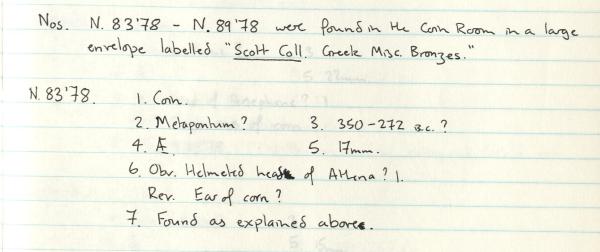 Nos. N. 83'78 - N. 89'78 were found in the Coin Room in a large
envelope labelled "Scott Coll. Greek Misc. Bronzes."
N. 83'78. 1. Coin.
2. Metapontum? 3. 350-272 B.C.?
4. Æ 5. 17mm.
6. Obv. Helmeted head of Athena? l.
Rev. Ear of corn?
7. Found as explained above.